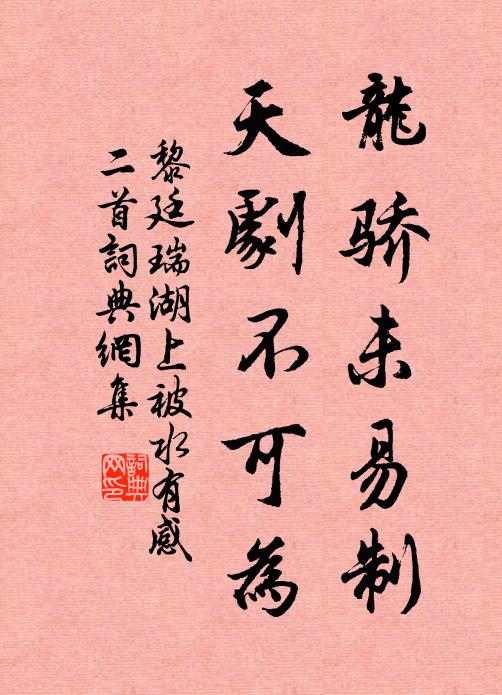 龍骄未易制
天劇不可為
黎廷瑞湖上被水有感
二首詞典網集
詞典
网印